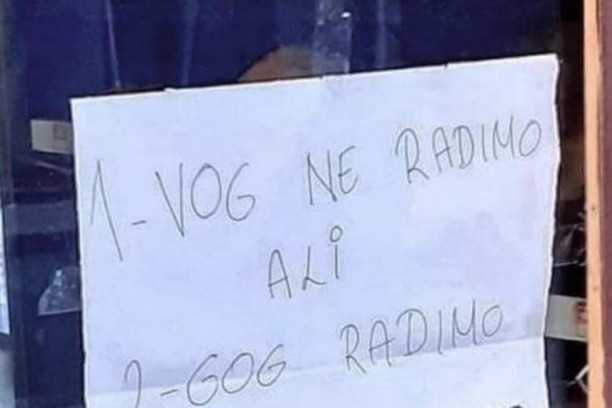 1-VOG NE RADIMO
ALi
2-GOG RADIMO